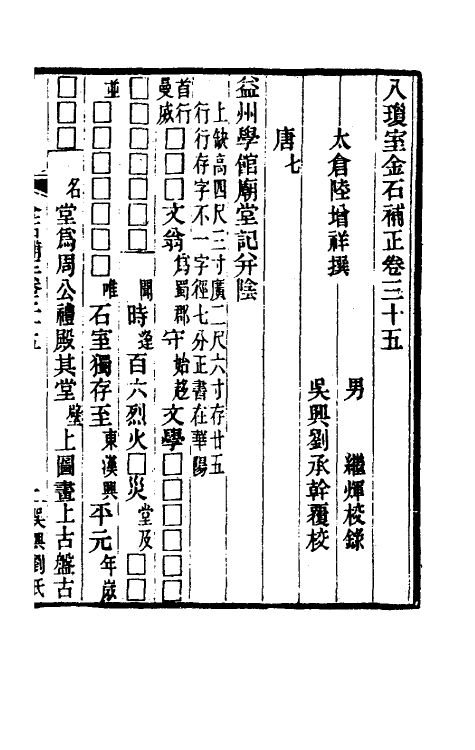 八瓊室金石補正卷三十五
太倉陸增祥撰
男 繼煇校錄
吳興劉承幹覆校
唐七
益州學館廟堂記并陰
上缺高四尺三寸廣二尺六寸存廿五
行行存字不一字徑七分正書在華陽
首行曼滅□□□文翁爲蜀郡守始起文學□□□□
□□□□閒時逢百六烈火□災堂及□□
並□□□□□唯石室獨存至東漢興平元年歲
□□□名堂爲周公禮殿其堂壁上圖畫上古盤古
吳興劉氏